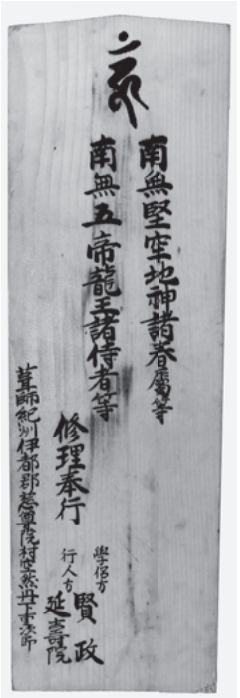 南無堅牢地神諸眷屬等
南無五帝龍王諸侍者等
修理奉行
學侶方
賢政
行人方
延壽院
葺師紀州伊都郡慈尊院村